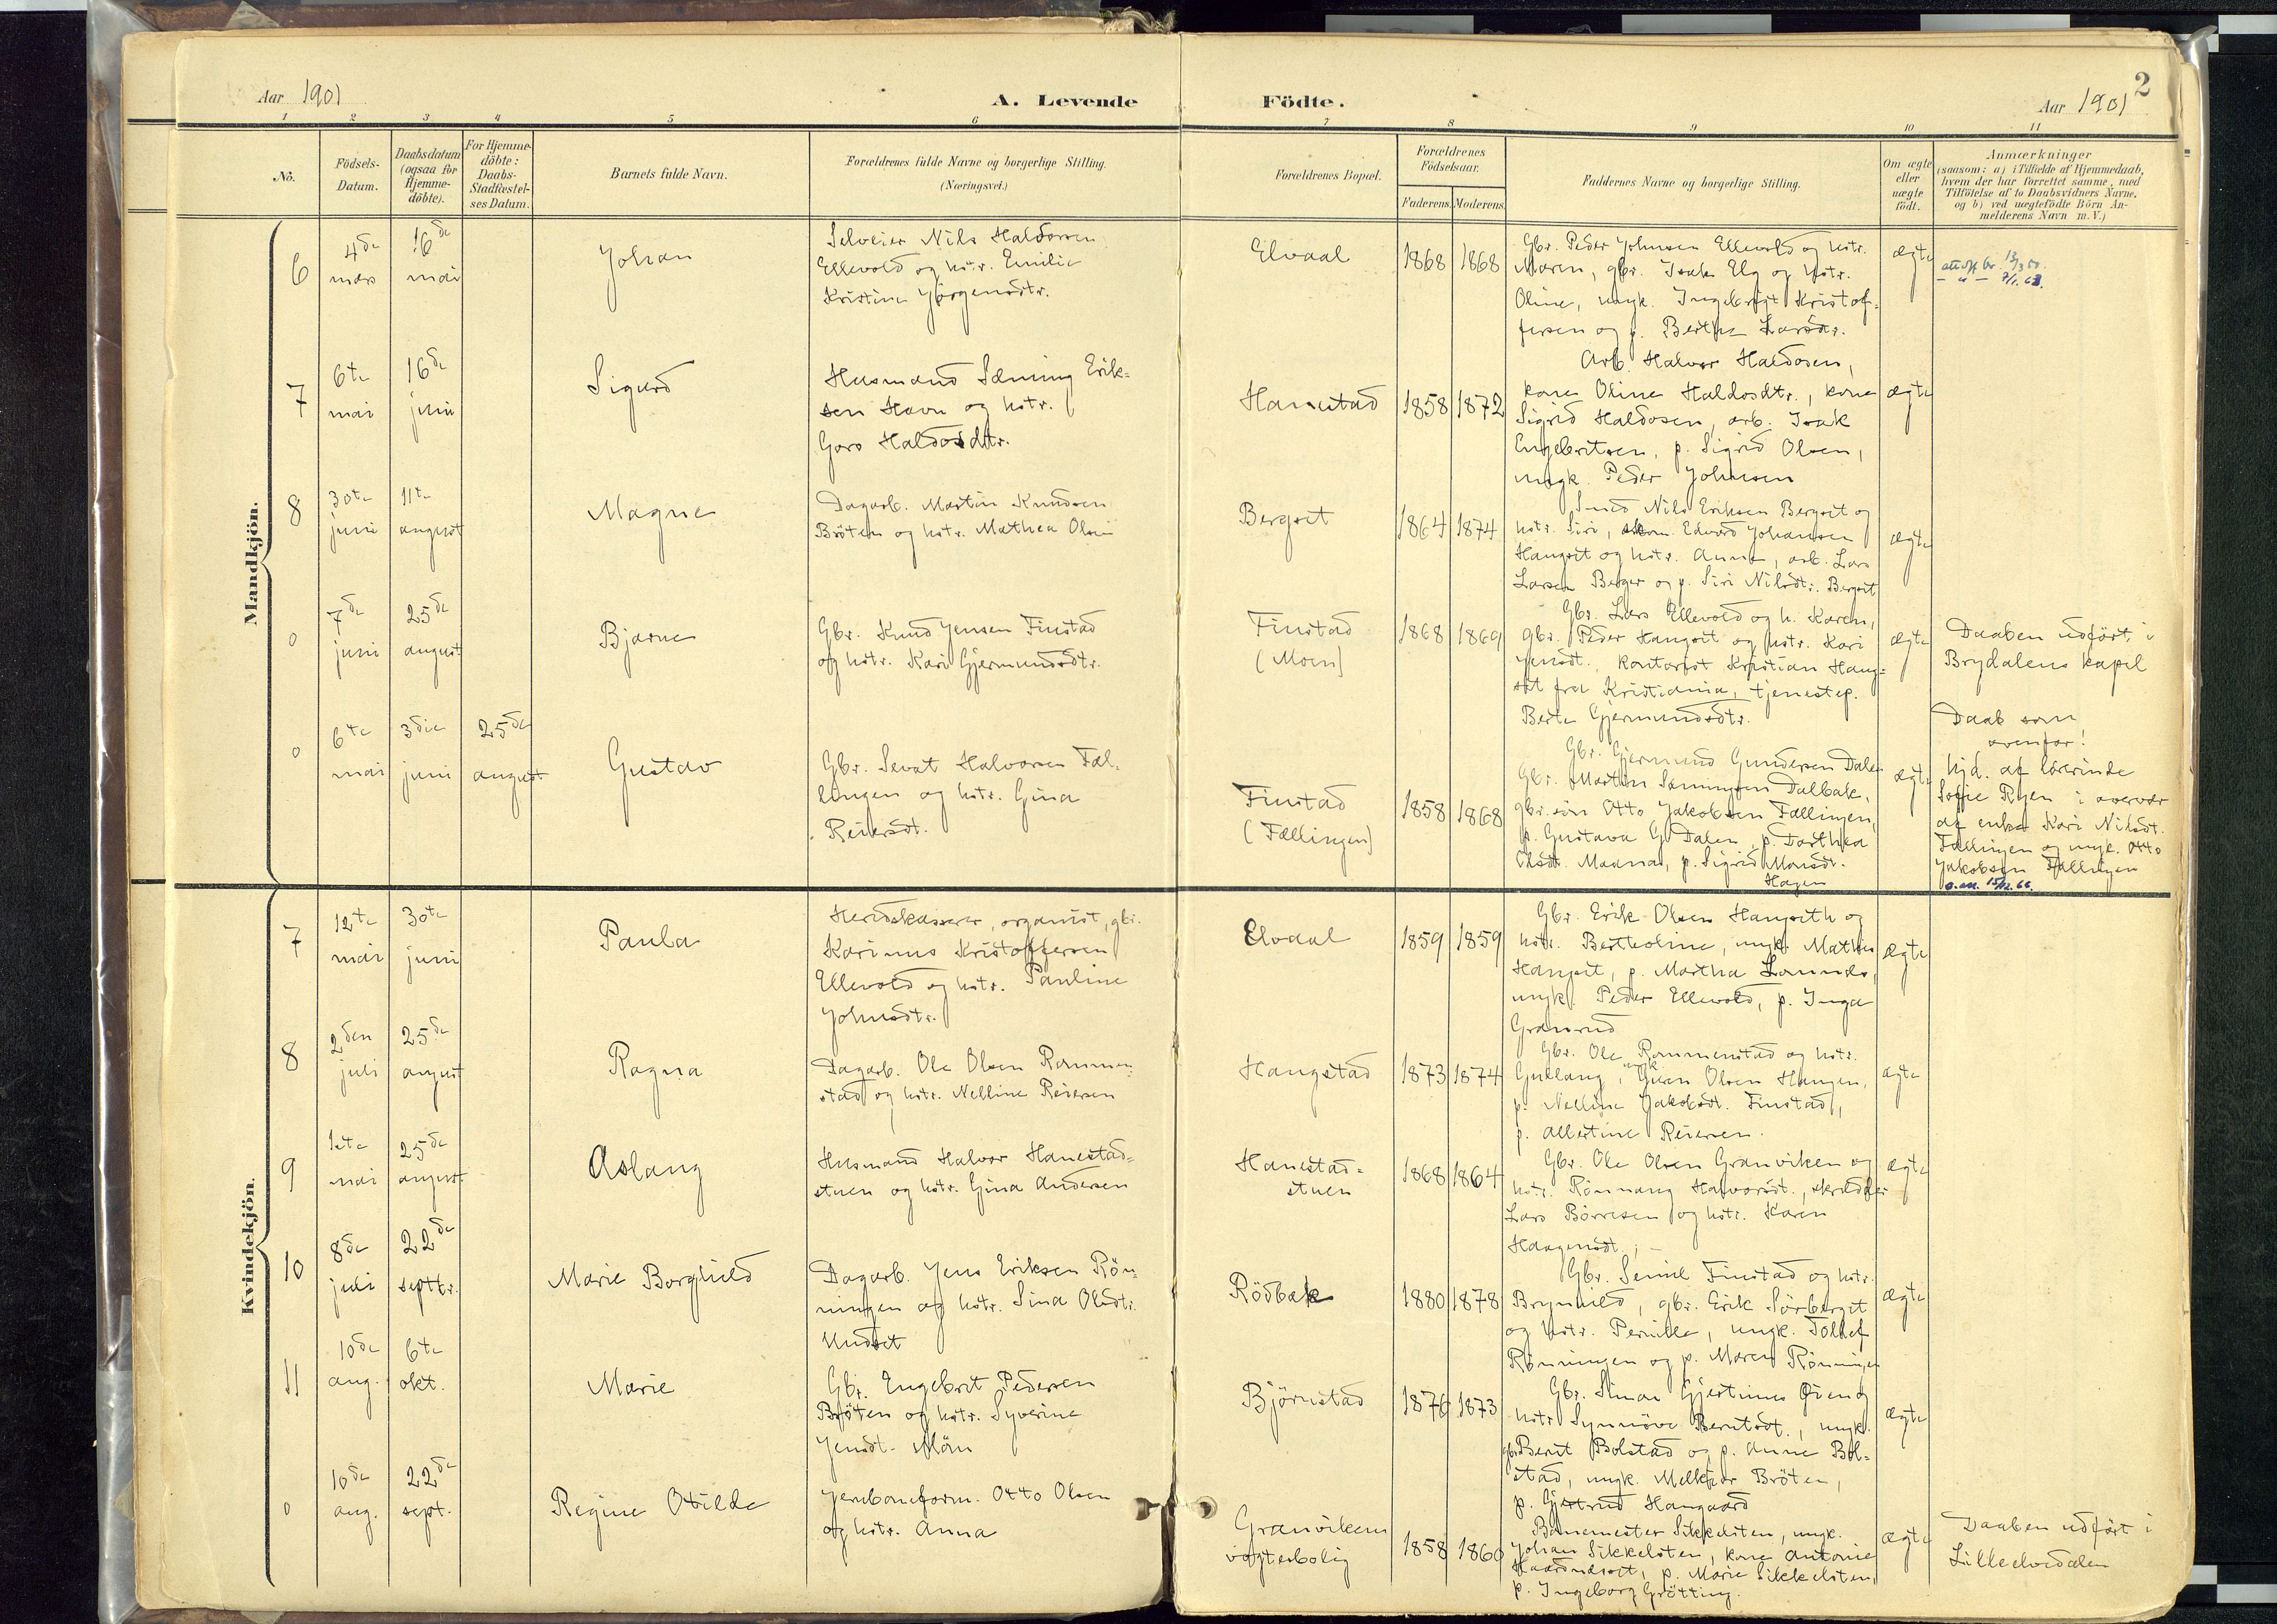 2
Aar 1901
A. Levende Födte.
Aar 1901
1 2 3 4 5 6 7 8 9 10 11
No.
Födsels-
Datum.
Daabsdatum
(ogsaa for
Hjemme-
döbte).
For Hjemme-
döbte:
Daabs-
Stadfæstel-
ses Datum.
Barnets fulde Navn.
Forældrenes fulde Navne og borgerlige Stilling.
(Næringsvei.)
Forældrenes Bopæl.
Forældrenes
Födselsaar.
Faderens. Moderens.
Faddernes Navne og borgerlige Stilling.
Om ægte
eller
uægte
födt.
Anmærkninger
(saasom: a) i Tilfælde af Hjemmedaab,
hvem der har forrettet samme, med
Tilföielse af to Daabsvidners Navne,
og b) ved uægtefödte Börn An-
melderens Navn m.V.)
Mandkjön.
6
4de
mars
16de
mai
Johan
Selveier Nils Haldorsen
Ellevold og hstr. Emilie
Kristine Jörgensdtr.
Elvaal
1868 1868
Gbr. Peder Johnsen Ellevold og hstr.
Maren, gbr. Isak Elg og hstr.
Oline, ungk. Ingebrigt Kristof-
fersen og p. Berthe Larsdtr.
ægte
13/3 50.
7/1. 63.
7
6te
mai
16de
juni
Sigurd
Husmand Sæming Erik-
sen Havn og hstr.
Goro Haldosdtr.
Hanestad
1858 1872
Arb. Halvor Haldosen,
kone Oline Haldosdtr., kone
Sigrid Haldosen, arb. Isak
Engebretsen, p. Sigrid Olsen,
ungk. Peder Johnsen
ægte
8
30te
juni
11te
august
Magne
Dagarb. Martin Knudsen
Bröten og hstr. Mathea Olsen
Bergset
1864 1874
Smed Nils Eriksen Bergset og
hstr. Siri, skom. Edvard Johansen
Haugset og hstr. Anne, arb. Lars
Larsen Berger og p. Siri Nilsdt. Bergset
ægte
0
7de
juni
25de
august
Bjarne
Gbr. Knud Jensen Finstad
og hstr. Kari Gjermundsdtr.
Finstad
(Moen)
1868 1869
Gbr. Lars Ellevold og h. Karen,
gbr. Peder Haugset og hstr. Kari
Jensdt., kontorist Kristian Haug-
set fra Kristiania, tjenestep.
Berte Gjermundsdtr.
ægte
Daaben udfört i
Brydalens kapel
0
6te
mai
3die
juni
25de
august
Gustav
Gbr. Sevat Halvorsen Fæl-
lingen og hstr. Gina
Reiersdt.
Finstad
(Fællingen)
1858 1868
Gbr. Gjermund Gundersen Dalen
Gbr. Martin Sæmingsen Dalbak,
gbr.sön Otto Jakobsen Fællingen,
p. Gustava G. Dalen, p. Dorthea
Olsdt. Maana, p. Sigrid Monsdt.
Hagen
ægte
Daab som
ovenfor!
Hjd. af lærerinde
Sofie Ryen i overvær
af enke Kari Nilsdt.
Fællingen og ungk. Otto
Jakobsen Fællingen
15/12.66.
Kvindekjön.
7
12te
mai
30te
juni
Paula
Herredskasserer, organist, gbr.
Karinus Kristoffersen
Ellevold og hstr. Pauline
Johnsdtr.
Elvaal
1859 1859
Gbr. Erik Olsen Haugseth og
hstr. Bertheoline, ungk. Mathias
Haugset, p. Martha Lomnes,
ungk. Peder Ellevold, p. Inga
Granrud
ægte
8
2den
juli
25de
august
Ragna
Dagarb. Ole Olsen Rommen-
stad og hstr. Nelline Reiersen
Haugstad
1873 1874
Gbr. Ole Rommenstad og hstr.
Gullaug, ungk. Even Olsen Haugen,
p. Nelline Jakobsdt. Finstad,
p. Albertine Reiersen.
ægte
9
mai
25de
august
Aslaug
Husmand Halvor Hanestad-
stuen og hstr. Gina Andersen
Hanestad-
stuen
1868 1864
Gbr. Ole Olsen Granviken og
hstr. Rönnaug Halvorsdt., skrædder
Lars Börresen og hstr. Karen
Haagensdt.,
ægte
10
8de
juli
22de
septbr.
Marie Borghild
Dagarb. Jens Eriksen Rön-
ningen og hstr. Sina Olsdtr.
Undset
Rödbak
1880 1878
Gbr. Semil Finstad og hstr.
Brynhild, gbr. Erik Sörberget
og hstr. Pernille, ungk. Tollef
Rönningen og p. Maren Rönningen
ægte
11
10de
aug.
6te
okt.
Marie
Gbr. Engebret Pedersen
Bröten og hstr. Syverine
Jensdt. Möen
Björnstad
1876 1873
Gbr. Simon Gjertines Öien og
hstr. Synnöve Berntsdt., ungk.
gbr. Berit Bolstad og p. Anne Bol-
stad, ungk. Melkior Bröten,
p. Gjertrud Haugaard
ægte
0
10de
aug.
22de
sept.
Regine Otilde
Jernbaneform. Otto Olsen
og hstr. Anna
Granvikens
vogterbolig
1858 1860
Banemester Sikkelsten, ungk.
Johan Sikkelsten, kone Antonie
p. Marie Sikkelsten,
p. Ingeborg Grötting.
ægte
Daaben udfört i
Lilleelvedalen